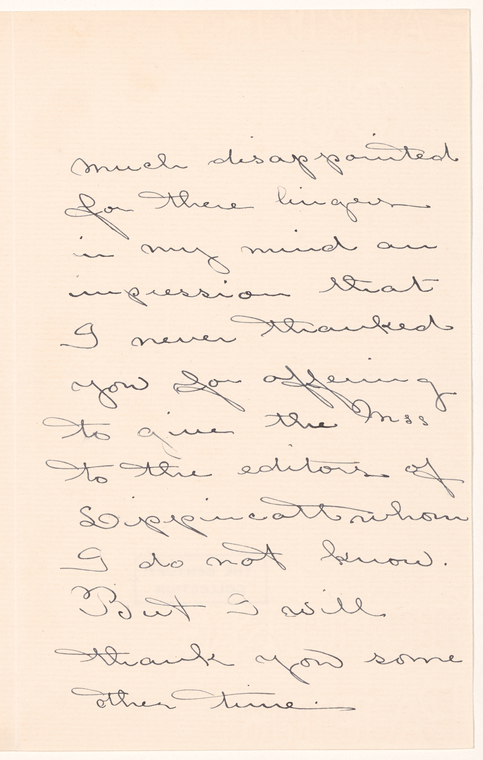 much disappointed
for there lingers
in my mind an
impression that
I never thanked
you for offering
to give the Mss
to the editors of
Lippincott whom
I do not know.
But I will
thank you some
other time.